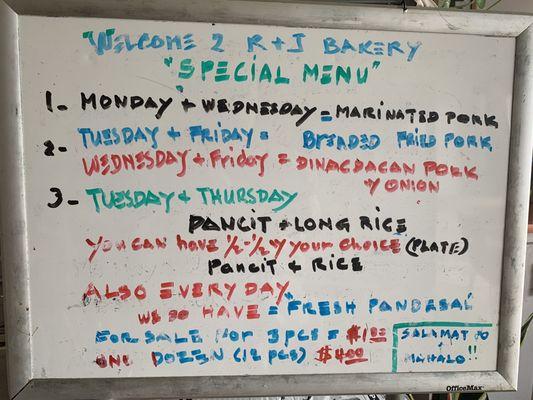 "WELCOME 2 R + J BAKERY
"SPECIAL MENU"
1- MONDAY + WEDNESDAY = MARINATED PORK
2- TUESDAY + FRIDAY = BREADED FRIED PORK
WEDNESDAY + Friday = DINACDACAN PORK
Y ONION
3- TUESDAY + THURSDAY
PANCIT + LONG RICE
YOU CAN have 1/2-1/2 Y your choice (PLATE)
PANCIT + RICE
ALSO EVERY DAY
WE DO HAVE = "FRESH PANDESAL"
FOR SALE HOT 3 PCS = $1.00
ONE DOZEN (12 PCS) $4.00
SALAMAT PO
+
MAHALO!!
OfficeMax